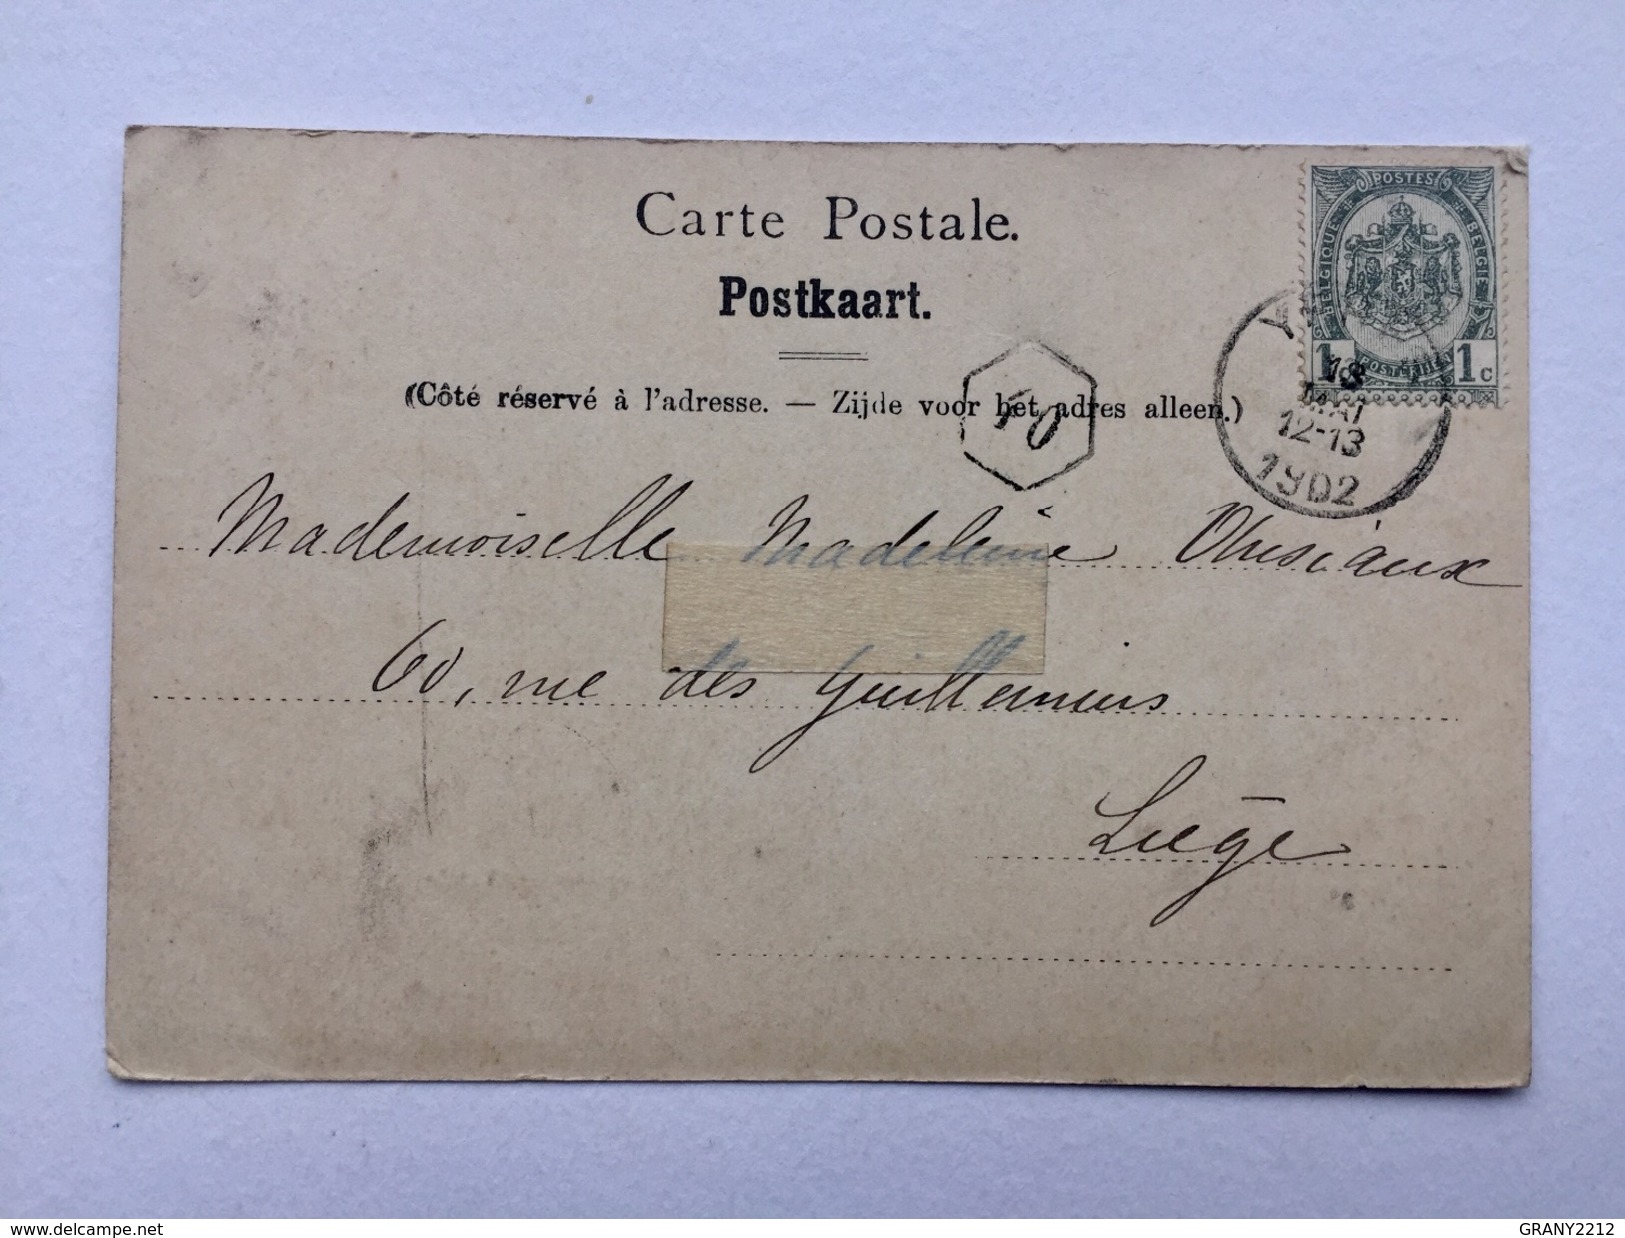 Carte Postale.
Postkaart.
(Côté réservé à l'adresse. — Zijde voor het adres alleen.)
POSTES
BELGIQUE BELGIE
1c 1c
POSTERIJEN
13
MAI
12-13
1902
Mademoiselle Madeleine
60, rue des Guillemins
Liège
delcampe.net
GRANY2212